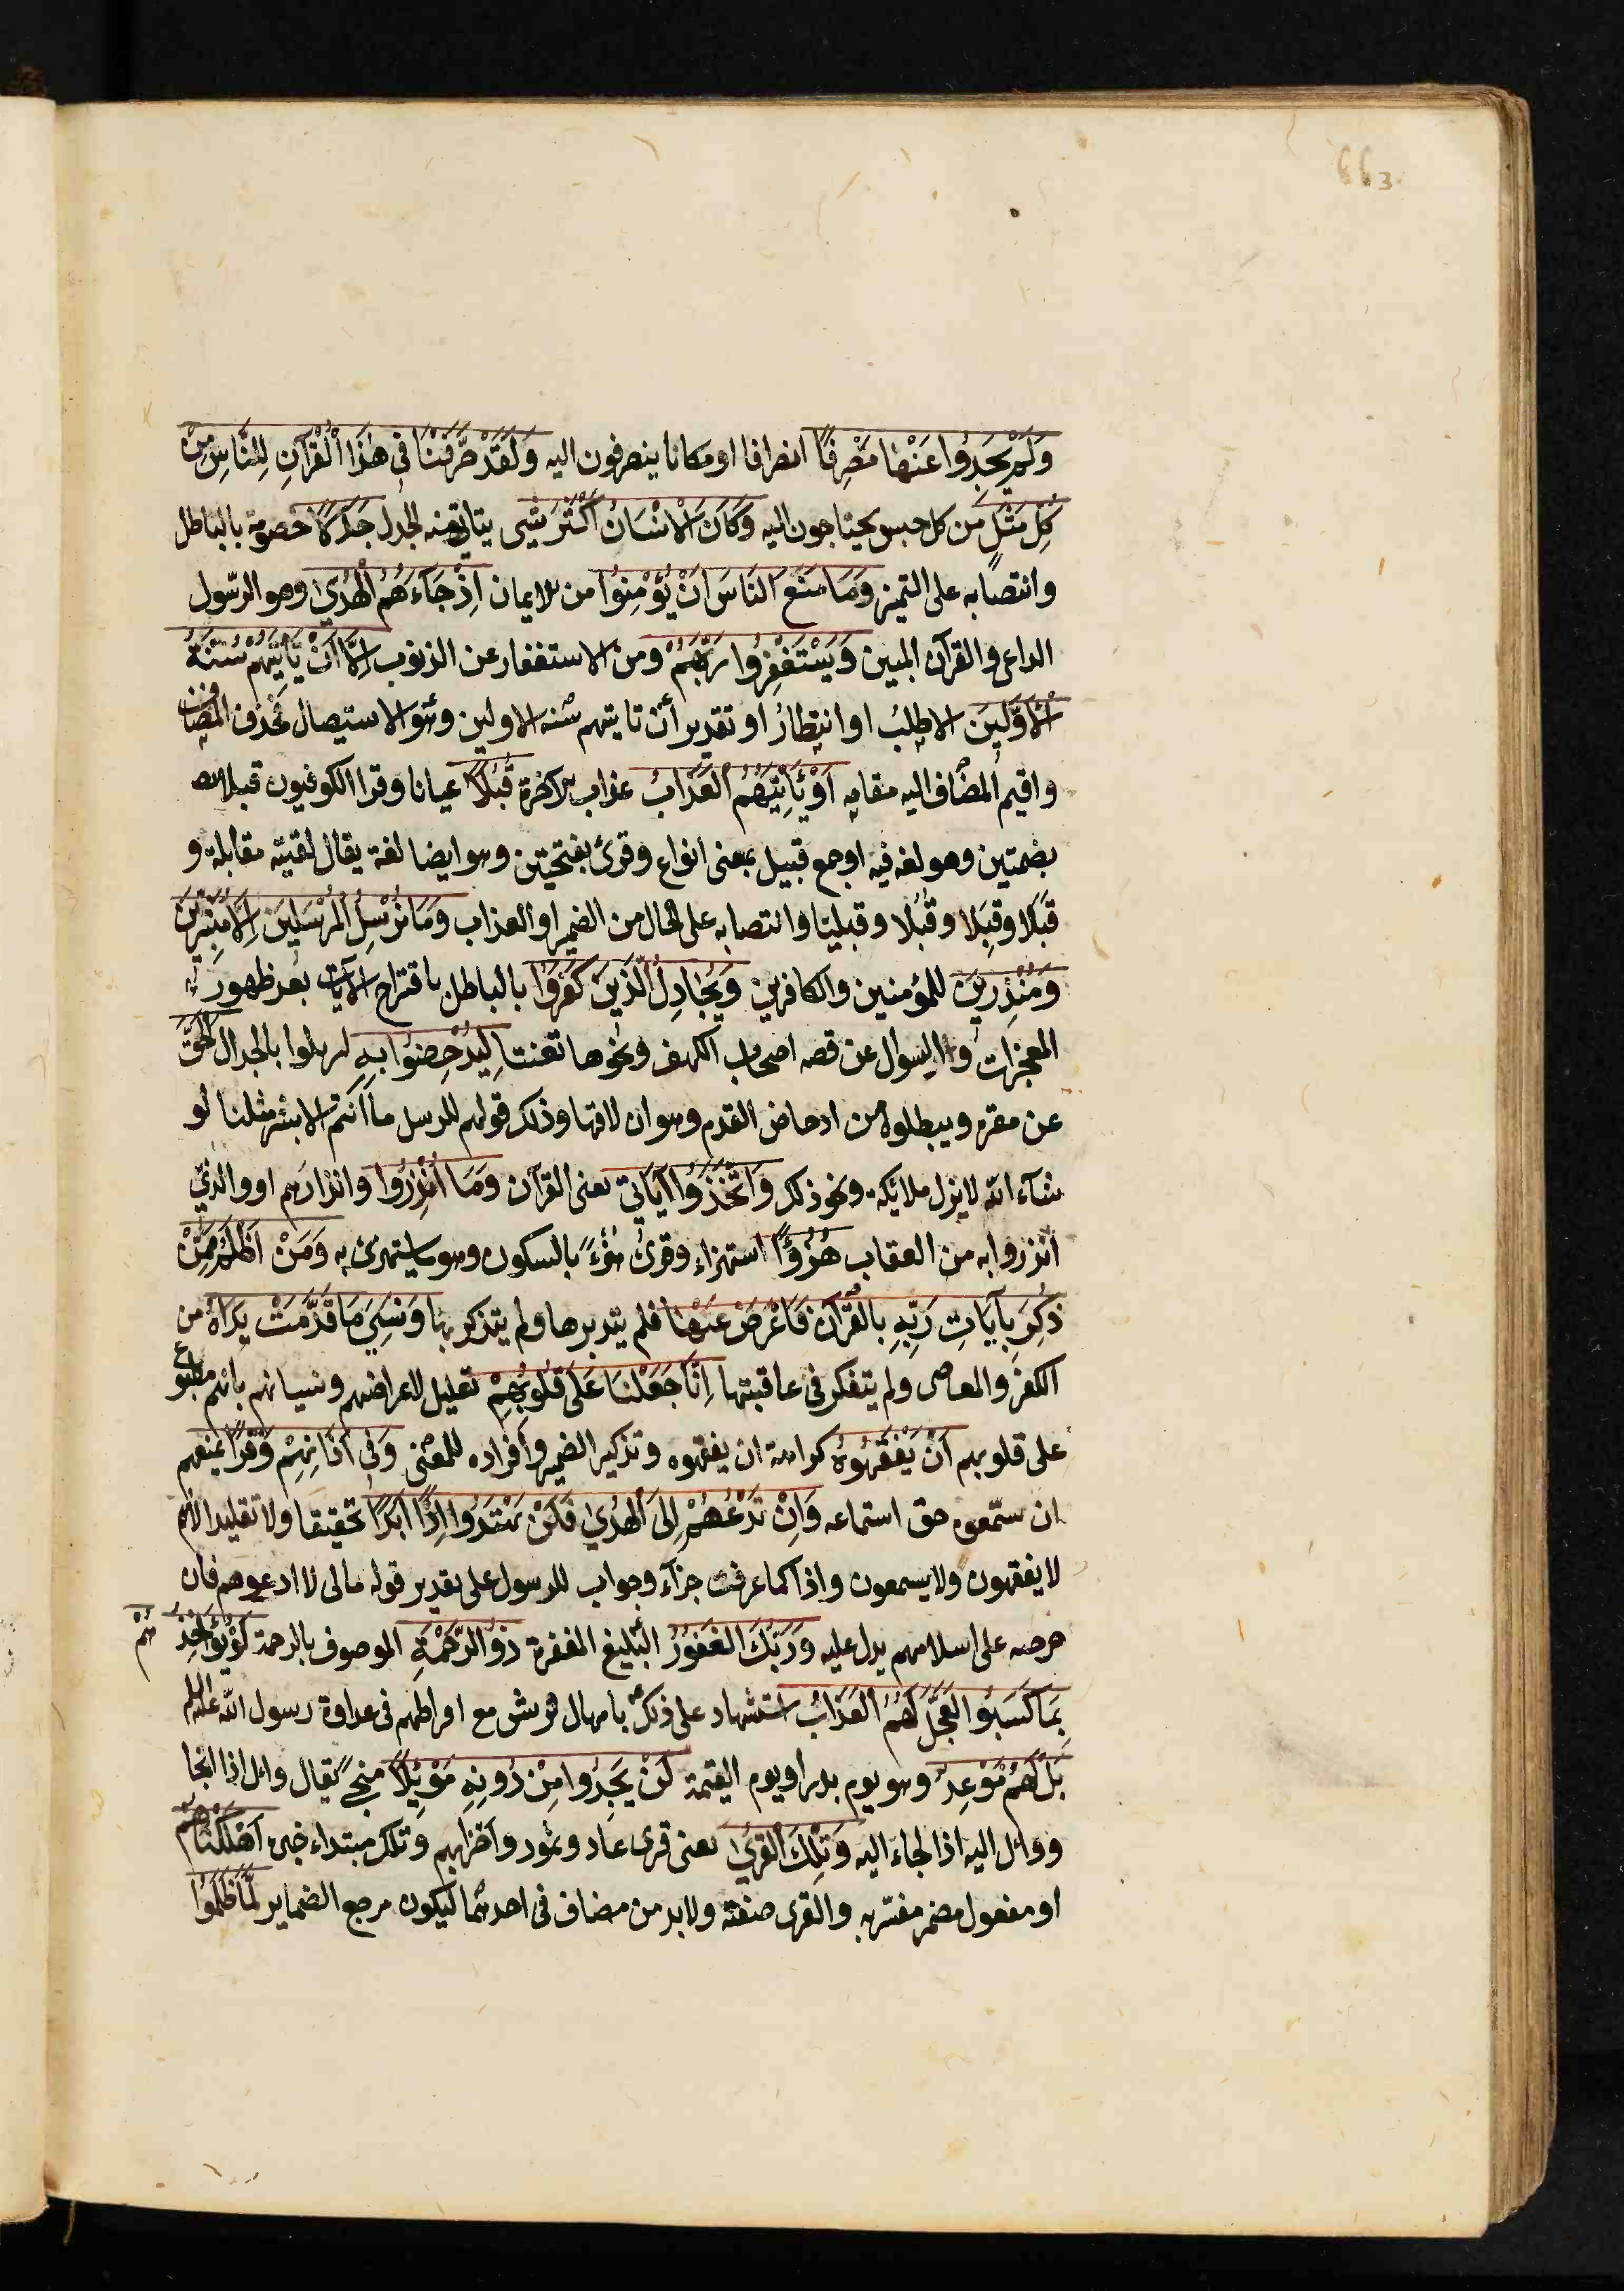 663
وَلَمْ يَجِدُوا عَنْهَا مَصْرِفًا انصرافا او مكانا ينصرفون اليه وَلَقَدْ صَرَّفْنَا فِي هٰذَا الْقُرْآنِ لِلنَّاسِ مِنْ
كُلِّ مَثَلٍ من كل جنس يحتاجون اليه وَكَانَ الْاِنْسَانُ اَكْثَرَ شَيْءٍ يتاتى منه الجدل جَدَلًا خصومة بالباطل
وانتصابه على التميز وَمَا مَنَعَ النَّاسَ اَنْ يُؤْمِنُوا من الايمان اِذْ جَاءَهُمُ الْهُدٰى وهو الرّسول
الداعى والقرآن المبين وَيَسْتَغْفِرُوا رَبَّهُمْ ومن الاستغفار عن الذنوب اِلَّا اَنْ تَأْتِيَهُمْ سُنَّةُ
الْاَوَّلِينَ الا طلبُ او انتظارُ او تقدير أن تاتيهم سُنة الاولين وهو الاستيصال فحذف المضاف
واقيم المضاف اليه مقامه اَوْ يَأْتِيَهُمُ الْعَذَابُ عذاب الآخرة قُبُلًا عيانا وقرا الكوفيون قبلا
بضمتين وهو لغة فيه او جمع قبيل بمعنى انواع وقرئ بفتحتين وهو ايضا لغة يقال لقيته مقابلة و
قَبَلًا وقِبَلا وقُبُلا وقبليّا وانتصابه على الحال من الضمير او العذاب وَمَا نُرْسِلُ الْمُرْسَلِينَ اِلَّا مُبَشِّرِينَ
وَمُنْذِرِينَ للمؤمنين والكافرين وَيُجَادِلُ الَّذِينَ كَفَرُوا بالباطل باقتراح الآيات بعد ظهور
المعجزات والسوال عن قصه اصحاب الكهف ونحوها تعنتا لِيُدْحِضُوا بِهِ ليزيلوا بالجدال الْحَقَّ
عن مقره ويبطلوه من ادحاض القدم وهو ازلاقها وذلك قولهم للرسل ما اَنتم الا بشر مثلنا لو
شآء الله لانزل ملائكة ونحو ذلك وَاتَّخَذُوا آيَاتِي يعنى القرآن وَمَا اُنْذِرُوا وانذارهم او والذي
انذروا به من العقاب هُزُؤًا استهزاء وقرئ هزءً بالسكون وهو ما يستهزئ به وَمَنْ اَظْلَمُ مِمَّنْ
ذُكِّرَ بِآيَاتِ رَبِّهِ بالقرآن فَاَعْرَضَ عَنْهَا فلم يتدبرها ولم يتذكر بها وَنَسِيَ مَا قَدَّمَتْ يَدَاهُ من
الكفر والمعاصى ولم يتفكر فى عاقبتها اِنَّا جَعَلْنَا عَلٰى قُلُوبِهِمْ تعليل لاعراضهم ونسيانهم بانهم مطبوع
على قلوبهم اَنْ يَفْقَهُوهُ كراهة ان يفقهوه وتذكير الضمير وافراده للمعنى وَفِي آذَانِهِمْ وَقْرًا يمنعهم
ان يستمعوه حق استماعه وَاِنْ تَدْعُهُمْ اِلَى الْهُدٰى فَلَنْ يَهْتَدُوا اِذًا اَبَدًا تحقيقا ولا تقليدا لانهم
لا يفقهون ولا يسمعون واذا كما عرفت جزآء وجواب للرسول على تقدير قوله مالى لا ادعوهم فان
حرصه على اسلامهم يدل عليه وَرَبُّكَ الْغَفُورُ البليغ المغفرة ذُو الرَّحْمَةِ الموصوف بالرحمة لَوْ يُؤَاخِذُهُمْ
بِمَا كَسَبُوا لَعَجَّلَ لَهُمُ الْعَذَابَ استشهاد على ذلك بامهال قريش مع افراطهم فى عداوة رسول الله عليه السلام
بَلْ لَهُمْ مَوْعِدٌ وهو يوم بدر او يوم القيمة لَنْ يَجِدُوا مِنْ دُونِهِ مَوْئِلًا منجى يقال وال اذا انجا
ووال اليه اذا لجاء اليه وَتِلْكَ الْقُرٰى يعنى قرى عاد وثمود واضرابهم وتلك مبتداء خبره اَهْلَكْنَاهُمْ
او مفعول مضمر مفسّر به والقرى صفته ولا بد من مضاف فى احدهما ليكون مرجع الضماير لَمَّا ظَلَمُوا